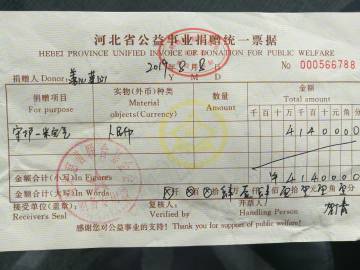 河北省公益事业捐赠统一票据
HEBEI PROVINCE UNIFIED INVOICE OF DONATION FOR PUBLIC WELFARE
捐赠人Donor: 2019年8月8日 No 000566788
Y M D
捐赠项目 实物(外币)种类 数量 金额
For purpose Material objects(Currency) Amount Total amount
千百十万千百十元角分
人民币 4140000
金额合计(小写)In Figures ¥4140000
金额合计(大写)In Words ⊗仟⊗佰⊗拾肆万壹仟肆佰零拾零元零角零分
接受单位(盖章): 复核人: 开票人:
Receivers Seal Verified by Handling Person
感谢您对公益事业的支持! Thank you for support of public welfare!